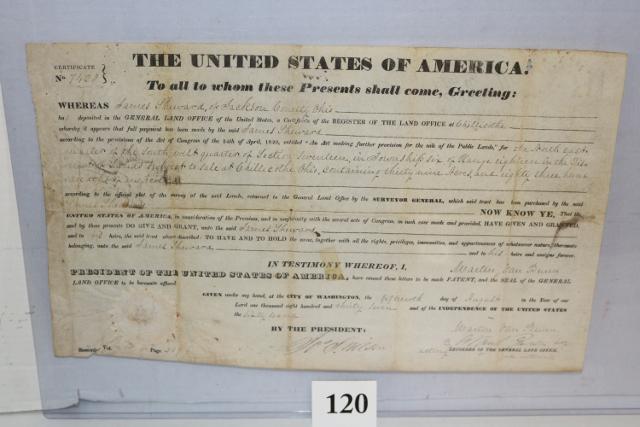 THE UNITED STATES OF AMERICA.
CERTIFICATE
No 7428
To all to whom these Presents shall come, Greeting:
WHEREAS James Sheward, of Jackson County, Ohio
has deposited in the GENERAL LAND OFFICE of the United States, a Certificate of the REGISTER OF THE LAND OFFICE at Chillicothe
whereby it appears that full payment has been made by the said James Sheward
according to the provisions of the Act of Congress of the 24th of April, 1820, entitled "An Act making further provision for the sale of the Public Lands," for the South east
quarter of the South west quarter of Section seventeen, in Township six of Range eighteen in the Dis
trict of Lands subject to sale at Chillicothe Ohio, containing thirty nine Acres, and eighty three hund
redths of an Acre
according to the official plat of the survey of the said Lands, returned to the General Land Office by the SURVEYOR GENERAL, which said tract has been purchased by the said
James Sheward NOW KNOW YE, That the
UNITED STATES OF AMERICA, in consideration of the Premises, and in conformity with the several acts of Congress, in such case made and provided, HAVE GIVEN AND GRANTED,
and by these presents DO GIVE AND GRANT, unto the said James Sheward
and to his heirs, the said tract above described: TO HAVE AND TO HOLD the same, together with all the rights, privileges, immunities, and appurtenances of whatsoever nature, thereunto
belonging, unto the said James Sheward and to his heirs and assigns forever.
IN TESTIMONY WHEREOF, I, Martin Van Buren
PRESIDENT OF THE UNITED STATES OF AMERICA, have caused these letters to be made PATENT, and the SEAL of the GENERAL
LAND OFFICE to be hereunto affixed.
GIVEN under my hand, at the CITY OF WASHINGTON, the fifteenth day of August in the Year of our
Lord one thousand eight hundred and thirty seven and of the INDEPENDENCE OF THE UNITED STATES
the sixty second
BY THE PRESIDENT: Martin Van Buren
By
Acting RECORDER OF THE GENERAL LAND OFFICE.
Recorded, Vol. Page
120